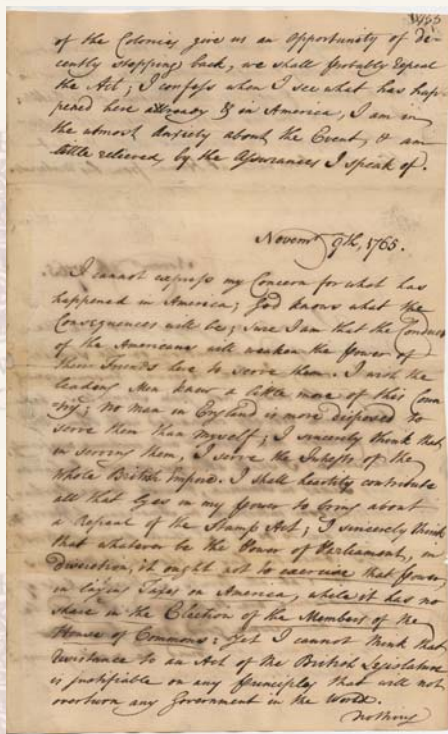 1765
of the Colonies give us an Opportunity of de-
cently stopping back, we shall probably Repeal
the Act; I confess when I see what has hap-
pened here already & in America, I am in
the utmost Anxiety about the Event, & am
little relieved, by the Assurances I speak of.
Novemr. 9th, 1765.
I cannot express my Concern for what has
happened in America; God knows what the
Consequences will be; sure I am that the Conduct
of the Americans will weaken the power of
their Friends here to serve them. I wish the
leading Men knew a little more of this Coun
try; no Man in England is more disposed to
serve them than myself; I sincerely think that
in serving them, I serve the Interests of the
whole British Empire. I shall heartily contribute
all that lyes in my power to bring about
a Repeal of the Stamp Act; I sincerely think
that whatever be the Power of Parliament, in
discretion, it ought not to exercise that power,
in laying Taxes on America, while it has no
share in the Election of the Members of the
House of Commons: yet I cannot think that
resistance to an Act of the British Legislature
is justifiable on any Principles that will not
overturn any Government in the World.
nothing